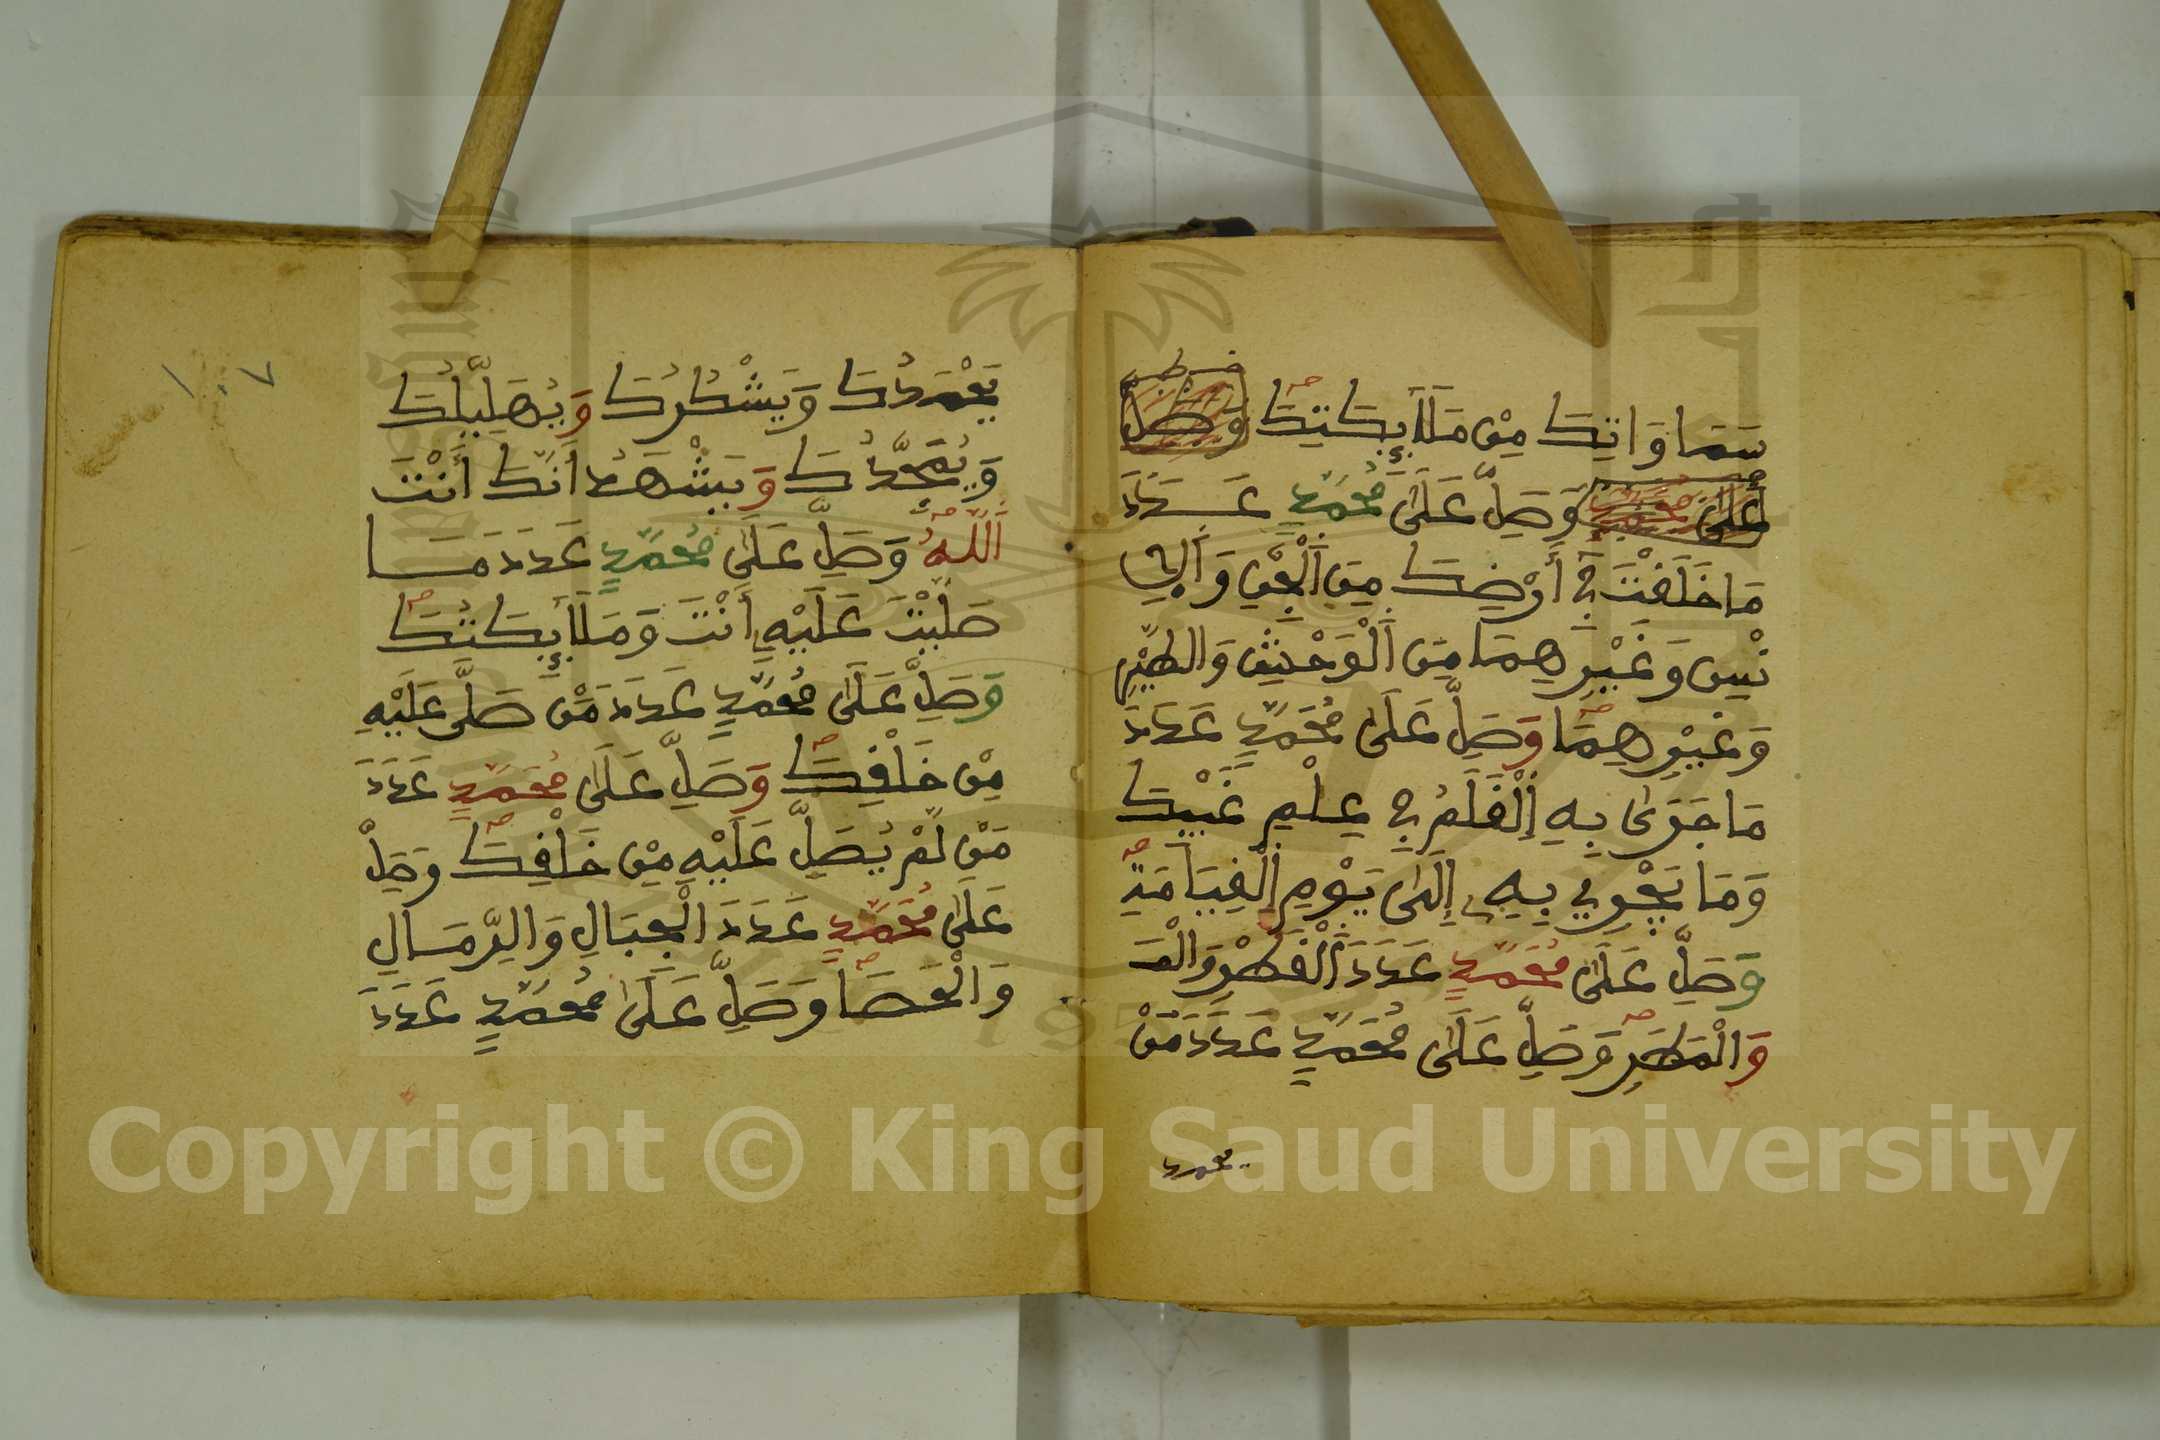 سَمَاوَاتِكَ مِنْ مَلَآئِكَتِكَ وَصَلِّ
عَلَىٰ مُحَمَّدٍ وَصَلِّ عَلَىٰ مُحَمَّدٍ عَدَدَ
مَا خَلَقْتَ فِي أَرْضِكَ مِنَ ٱلْجِنِّ وَٱلِا
نْسِ وَغَيْرِهِمَا مِنَ ٱلْوَحْشِ وَالطَّيْرِ
وَغَيْرِهِمَا وَصَلِّ عَلَىٰ مُحَمَّدٍ عَدَدَ
مَا جَرَىٰ بِهِ ٱلْقَلَمُ فِي عِلْمِ غَيْبِكَ
وَمَا يَجْرِي بِهِ إِلَىٰ يَوْمِ ٱلْقِيَامَةِ
وَصَلِّ عَلَىٰ مُحَمَّدٍ عَدَدَ ٱلْقَطْرِ
وَالْمَطَرِ وَصَلِّ عَلَىٰ مُحَمَّدٍ عَدَدَ مَنْ
يحمدك
١٠٧
يَحْمَدُكَ وَيَشْكُرُكَ وَيُهَلِّلُكَ
وَيُمَجِّدُكَ وَيَشْهَدُ أَنَّكَ أَنْتَ
ٱللَّهُ وَصَلِّ عَلَىٰ مُحَمَّدٍ عَدَدَ مَا
صَلَّيْتَ عَلَيْهِ أَنْتَ وَمَلَآئِكَتُكَ
وَصَلِّ عَلَىٰ مُحَمَّدٍ عَدَدَ مَنْ صَلَّىٰ عَلَيْهِ
مِنْ خَلْقِكَ وَصَلِّ عَلَىٰ مُحَمَّدٍ عَدَدَ
مَنْ لَمْ يُصَلِّ عَلَيْهِ مِنْ خَلْقِكَ وَصَلِّ
عَلَىٰ مُحَمَّدٍ عَدَدَ الْجِبَالِ وَالرِّمَالِ
وَالْحَصَا وَصَلِّ عَلَىٰ مُحَمَّدٍ عَدَدَ
Copyright © King Saud University